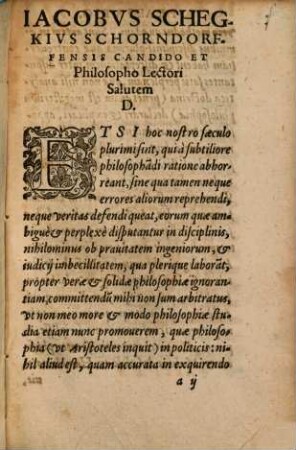 IACOBVS SCHEG-
KIVS SCHORNDORF-
FENSIS CANDIDO ET
Philosopho Lectori
Salutem
D.
ETSI hoc nostro sæculo
plurimi sint, qui à subtiliore
philosophãdi ratione abhor-
reant, sine qua tamen neque
errores aliorum reprehendi,
neque veritas defendi queat, eorum quæ am-
biguè & perplexè disputantur in disciplinis,
nihilominus ob prauitatem ingeniorum, &
iudicij imbecillitatem, qua plerique laborãt,
propter veræ & solidæ philosophiæ ignoran-
tiam, committendũ mihi non sum arbitratus,
vt non meo more & modo philosophiæ stu-
dia etiam nunc promouerem, quæ philoso-
phia (vt Aristoteles inquit) in politicis: ni-
hil aliud est, quam accurata in exquirendo
a ij